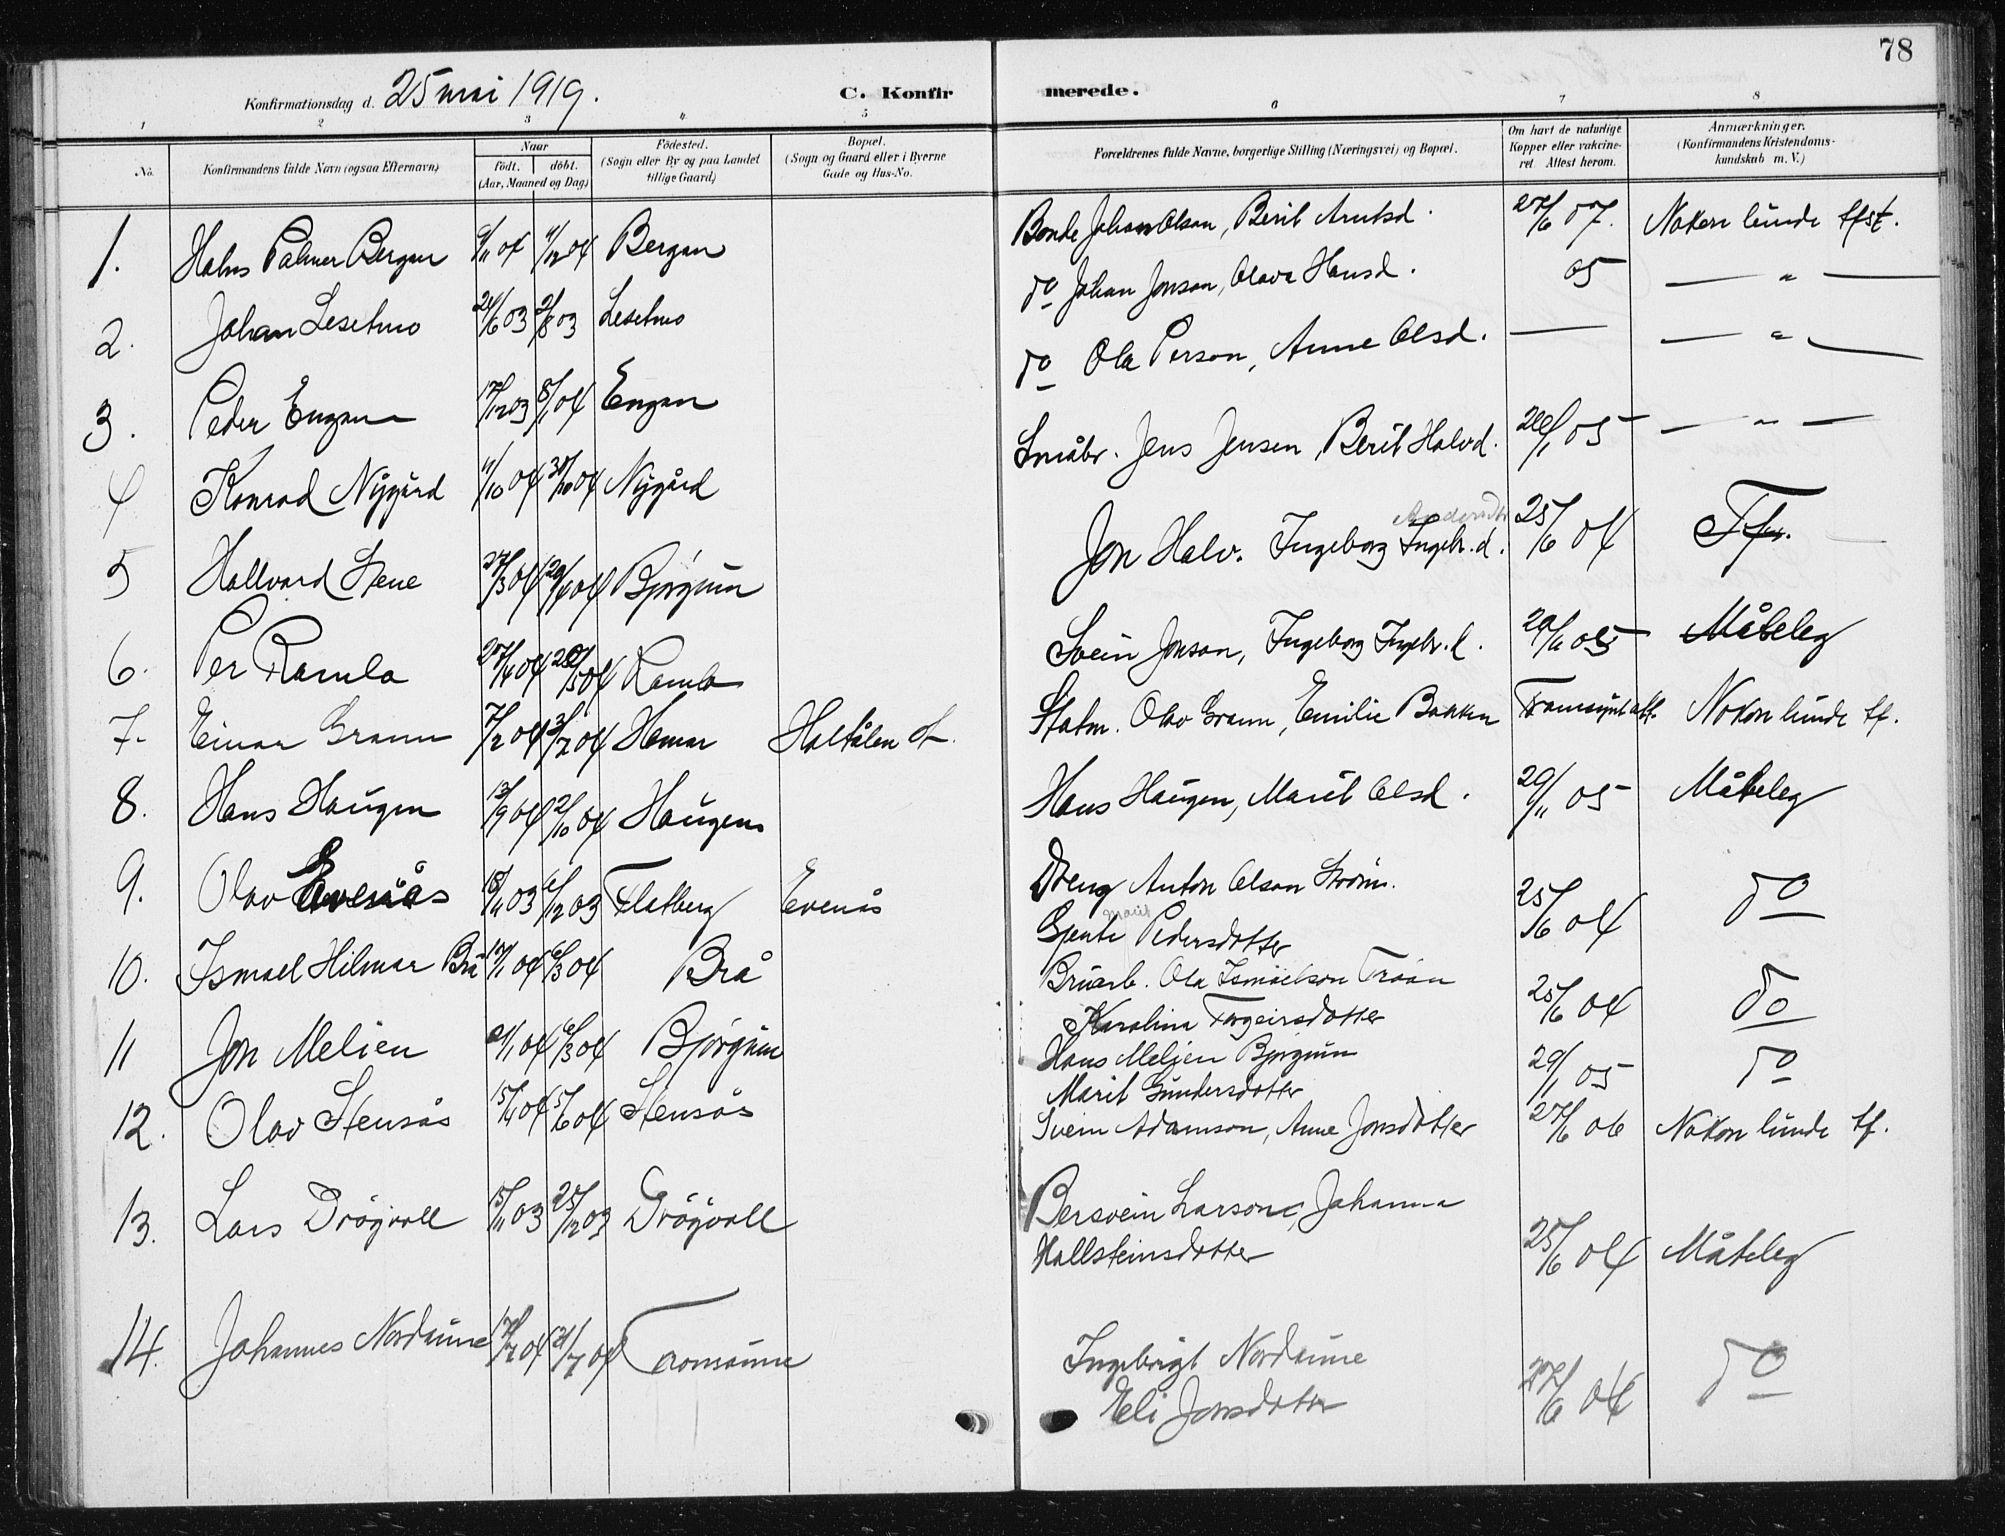 78
Konfirmationsdag d. 25 mai 1919. C. Konfirmerede.
1 2 3 4 5 6 7 8
No. Konfirmandens fulde Navn (ogsaa Efternavn) Naar født. døbt. (Aar, Maaned og Dag) Fødested. (Sogn eller By og paa Landet tillige Gaard) Bopæl. (Sogn og Gaard eller i Byerne Gade og Hus-No. Forældrenes fulde Navne, borgerlige Stilling (Næringsvei) og Bopæl. Om havt de naturlige Kopper eller vakcineret. Attest herom. Anmærkninger. (Konfirmandens Kristendomskundskab m. V.)
1. Palmer Bergan 04 04 Bergan Bonde Johan Olson, Berit Arntsd. 27/6 07. Nokon lunde tfst.
2. Johan Lesetmo 03 2/8 03 Lesetmo do Johan Jonson, Olava Hansd. 05 — " —
3. Peder Engan 17/12 03 8/1 04 Engan do Ola Person, Anne Olsd. — — " —
4 Konrad Nygård 11/10 04 30/10 04 Nygård Småbr. Jens Jensen, Berit Halvd. 05 — " —
5 Hallvard Stene 27/3 04 04 Bjørgum Jon Halv. Ingeborg Ingebr.d. Andersdtr 25/6 04 Tf.
6. Per Ramlo 27/4 04 04 Ramlo Svein Jonson, Ingeborg Ingebr.d. 05 Måteleg
7. Einar Gramm 7/2 04 3/7 04 Hemar Haltålen st. Statm. Olav Gramm, Emilie Bakken Framsynt att. Nokon lunde tf.
8. Hans Haugen 13/9 04 2/10 04 Haugen Hans Haugen, Marit Olsd. 29/11 05 Måteleg
9. Olav Evenås 03 6/12 03 Flatberg Evenås Dreng Anton Olson Strøm. Gjente Marit Pedersdotter 25/6 04 do
10. Ismael Hilmar Brå 17/1 04 6/3 04 Brå Bruarb. Ola Ismaelson Tråån Karolina Torgeirsdotter 25/6 04 do
11 Jon Melien 21/1 04 6/3 04 Bjørgum Hans Meljen Bjørgum Marit Gundersdotter 29/1 05 do
12. Olav Stensås 15/4 04 5/6 04 Stensås Svein Adamson, Anne Jonsdotter 27/6 06 Nokon lunde tf.
13. Lars Drøgvoll 15/11 03 25/12 03 Drøgvoll Bersvein Larson, Johanna Hallsteinsdotter 25/6 04 Måteleg
14. Johannes Nordaune 04 04 Tromsaune Ingebrigt Nordaune Eli Jonsdotter 27/6 04 do